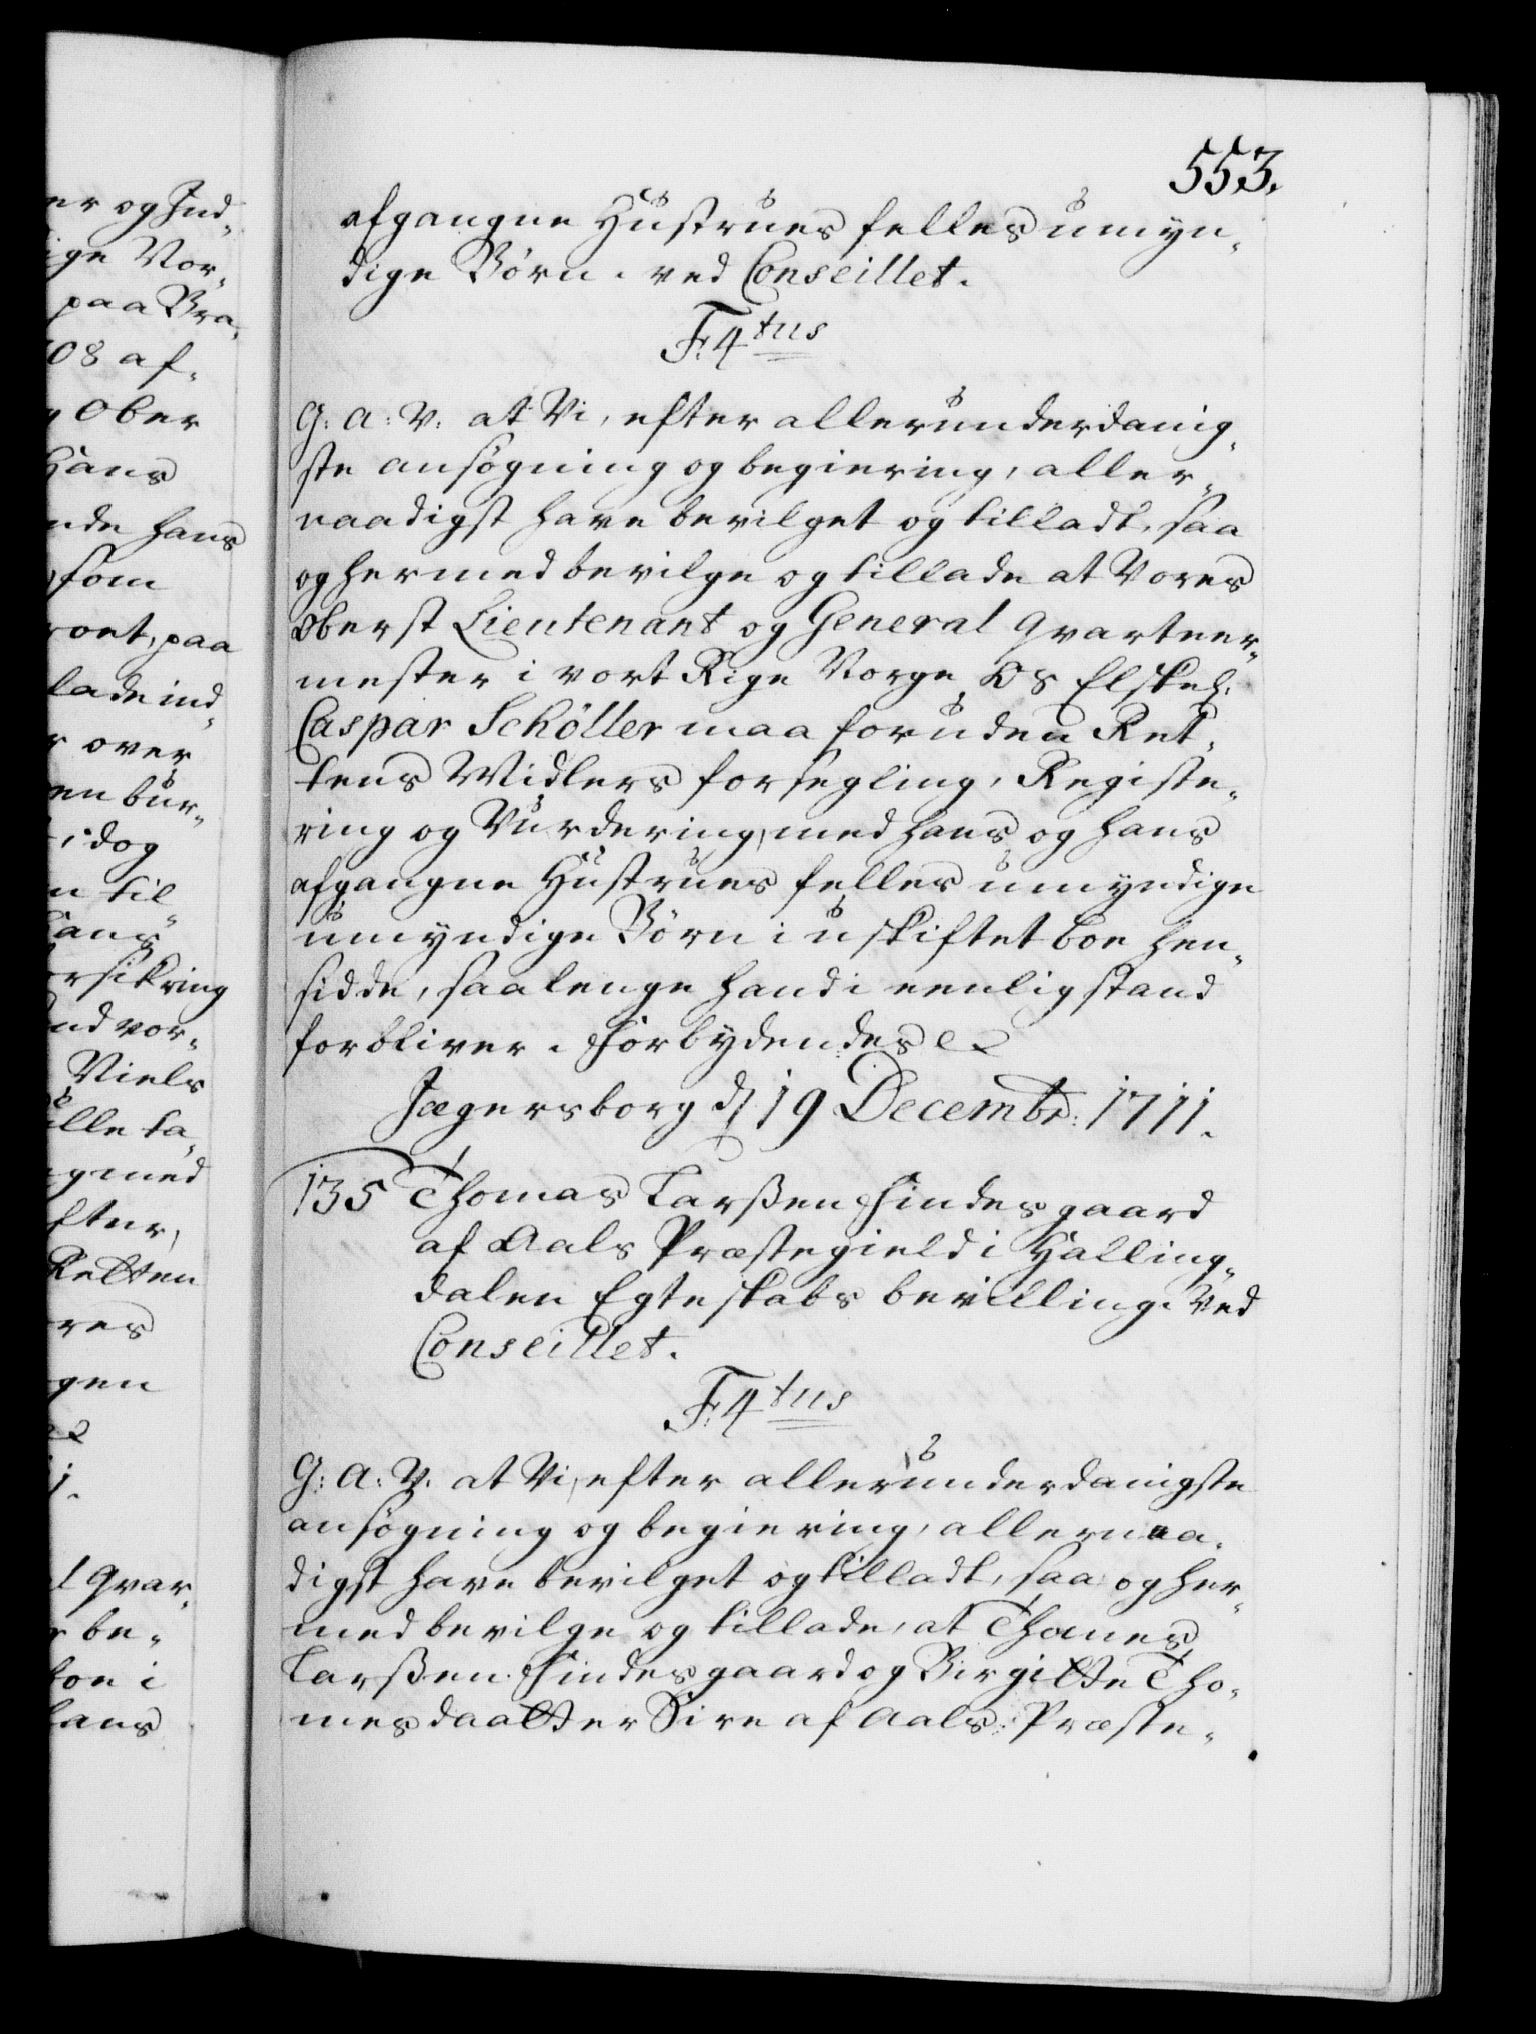 553.
afgangne Hustrues felles umyn-
dige Børn. ved Conseillet.
F: 4tus
G: A: V: at Vi, efter allerunderdanig-
ste ansøgning og begiering, aller-
naadigst have bevilget og tilladt, saa
og hermed bevilge og tillade at Vores
Oberst Lieutenant og General Qvarteer-
mester i vort Rige Norge Os Elskel:
Caspar Schøller maa foruden Ret-
tens Midlers forsegling, Registe-
ring og Vurdering, med hans og hans
afgangne Hustrues felles umyndige
umyndige Børn i uskiftet boe hen-
sidde, saalenge hand i eenlig stand
forbliver. Forbydendes etc
Jægersborg d/ 19 Decembr: 1711.
135 Thomas Larssen Sindesgaard
af Aals Præstegield i Halling-
dalen Egteskabs bevilling. Ved
Conseillet.
F: 4tus
G: A: V: at Vi, efter allerunderdanigste
ansøgning og begiering, allernaa-
digst have bevilget og tilladt, saa og her-
med bevilge og tillade, at Thomes
Larssen Sindesgaard og Birgitte Tho-
mesdaatter Sire af Aals Præste-
er og Ind-
ige Vor-
paa Bra-
08 af-
Ober
Hans
nde hans
som
oet, paa
lade ind-
r over
en bur-
i dog
n til
ans
orsikring
nd vor-
Niels
ille ta-
g med
fter,
Retten
res
gen
etc
l Qvar-
r be-
boe i
hans